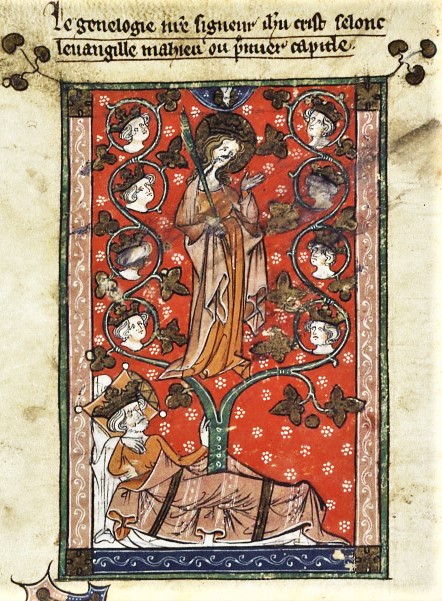 Le genelogie nr̄e signeur ih̄u crist selonc
leuangille mahieu ou p̄mier capitle.